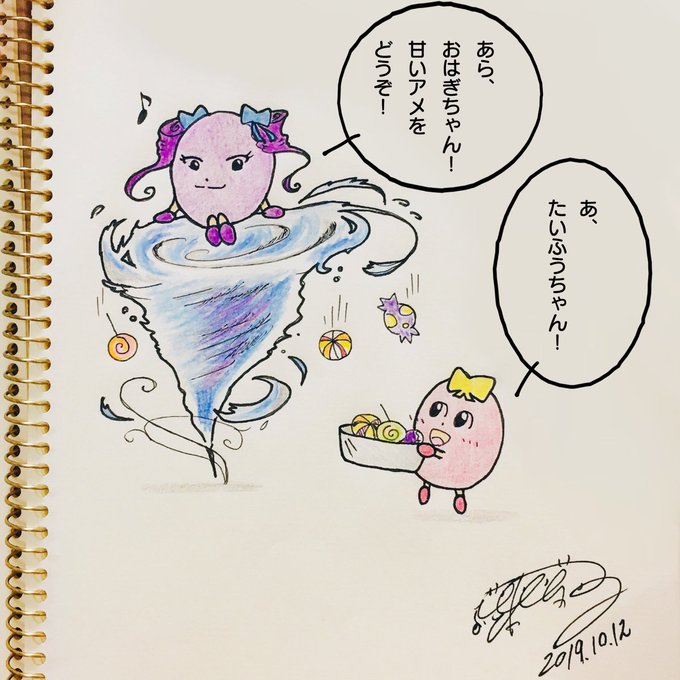 あら、
おはぎちゃん！
甘いアメを
どうぞ！
あ、
たいふうちゃん！
2019.10.12